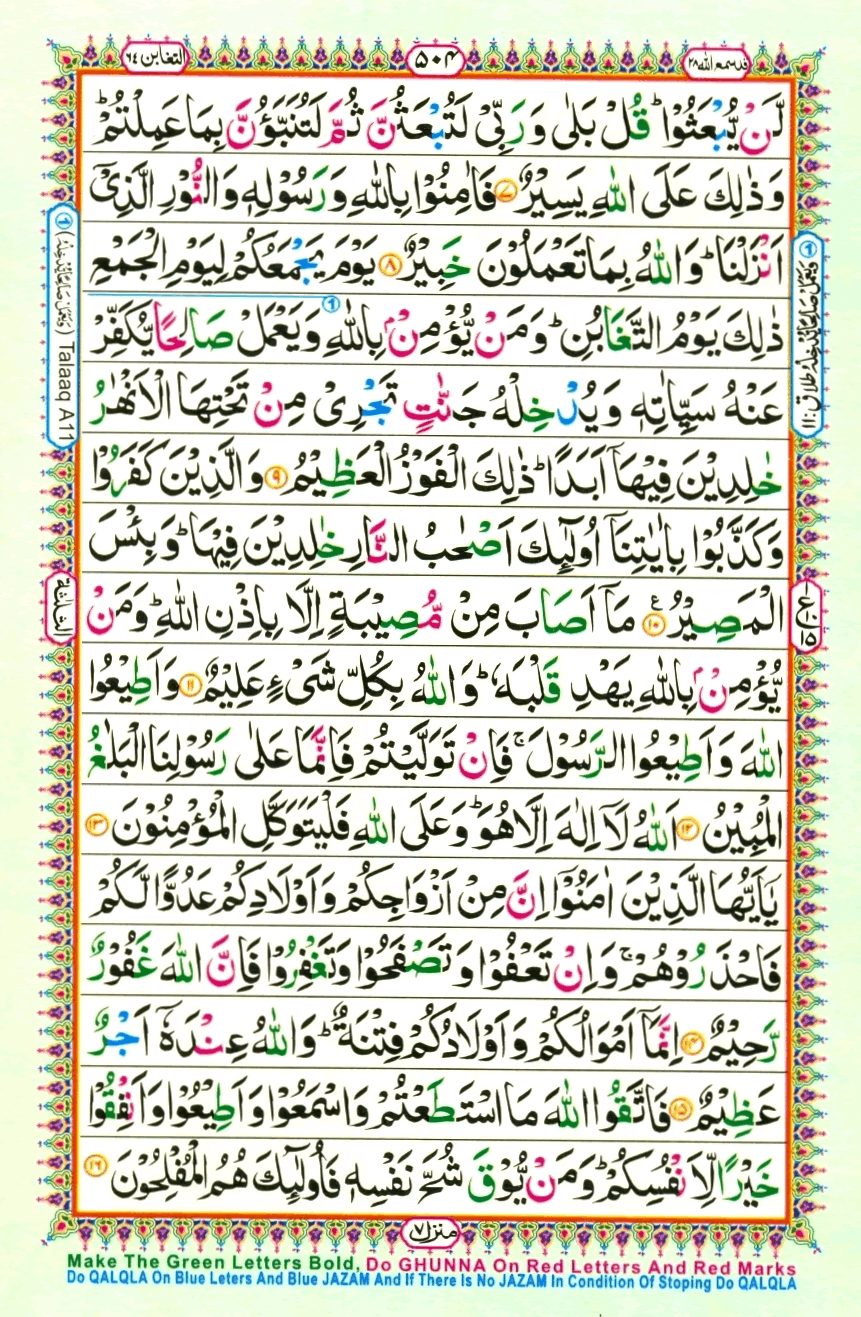 قدسمع الله ٢٨
٥٠٤
التغابن ٦٤
لَّنْ يُّبْعَثُوْا ؕ قُلْ بَلٰى وَ رَبِّىْ لَتُبْعَثُنَّ ثُمَّ لَتُنَبَّؤُنَّ بِمَا عَمِلْتُمْ ؕ
وَذٰلِكَ عَلَى اللّٰهِ يَسِيْرٌ ۞٧ فَاٰمِنُوْا بِاللّٰهِ وَ رَسُوْلِهٖ وَ النُّوْرِ الَّذِىْۤ
اَنْزَلْنَا ؕ وَاللّٰهُ بِمَا تَعْمَلُوْنَ خَبِيْرٌ ۞٨ يَوْمَ يَجْمَعُكُمْ لِيَوْمِ الْجَمْعِ
ذٰلِكَ يَوْمُ التَّغَابُنِ ؕ وَ مَنْ يُّؤْمِنْۢ بِاللّٰهِ وَيَعْمَلْ صَالِحًا يُّكَفِّرْ
عَنْهُ سَيِّاٰتِهٖ وَ يُدْخِلْهُ جَنّٰتٍ تَجْرِىْ مِنْ تَحْتِهَا الْاَنْهٰرُ
خٰلِدِيْنَ فِيْهَاۤ اَبَدًا ؕ ذٰلِكَ الْفَوْزُ الْعَظِيْمُ ۞٩ وَ الَّذِيْنَ كَفَرُوْا
وَكَذَّبُوْا بِاٰيٰتِنَاۤ اُولٰٓئِكَ اَصْحٰبُ النَّارِ خٰلِدِيْنَ فِيْهَا ؕ وَ بِئْسَ
الْمَصِيْرُ ۞١٠ مَاۤ اَصَابَ مِنْ مُّصِيْبَةٍ اِلَّا بِاِذْنِ اللّٰهِ ؕ وَ مَنْ
يُّؤْمِنْۢ بِاللّٰهِ يَهْدِ قَلْبَهٗ ؕ وَاللّٰهُ بِكُلِّ شَىْءٍ عَلِيْمٌ ۞١١ وَ اَطِيْعُوا
اللّٰهَ وَ اَطِيْعُوا الرَّسُوْلَ ۚ فَاِنْ تَوَلَّيْتُمْ فَاِنَّمَا عَلٰى رَسُوْلِنَا الْبَلٰغُ
الْمُبِيْنُ ۞١٢ اَللّٰهُ لَاۤ اِلٰهَ اِلَّا هُوَ ؕ وَعَلَى اللّٰهِ فَلْيَتَوَكَّلِ الْمُؤْمِنُوْنَ ۞١٣
يٰۤاَيُّهَا الَّذِيْنَ اٰمَنُوْۤا اِنَّ مِنْ اَزْوَاجِكُمْ وَاَوْلَادِكُمْ عَدُوًّا لَّكُمْ
فَاحْذَرُوْهُمْ ۚ وَ اِنْ تَعْفُوْا وَ تَصْفَحُوْا وَتَغْفِرُوْا فَاِنَّ اللّٰهَ غَفُوْرٌ
رَّحِيْمٌ ۞١٤ اِنَّمَاۤ اَمْوَالُكُمْ وَ اَوْلَادُكُمْ فِتْنَةٌ ؕ وَاللّٰهُ عِنْدَهٗۤ اَجْرٌ
عَظِيْمٌ ۞١٥ فَاتَّقُوا اللّٰهَ مَا اسْتَطَعْتُمْ وَاسْمَعُوْا وَ اَطِيْعُوْا وَ اَنْفِقُوْا
خَيْرًا لِّاَنْفُسِكُمْ ؕ وَ مَنْ يُّوْقَ شُحَّ نَفْسِهٖ فَاُولٰٓئِكَ هُمُ الْمُفْلِحُوْنَ ۞١٦
Talaaq A11
الثلثة
١٥
منزل ٧
Make The Green Letters Bold, Do GHUNNA On Red Letters And Red Marks
Do QALQLA On Blue Leters And Blue JAZAM And If There Is No JAZAM In Condition Of Stoping Do QALQLA